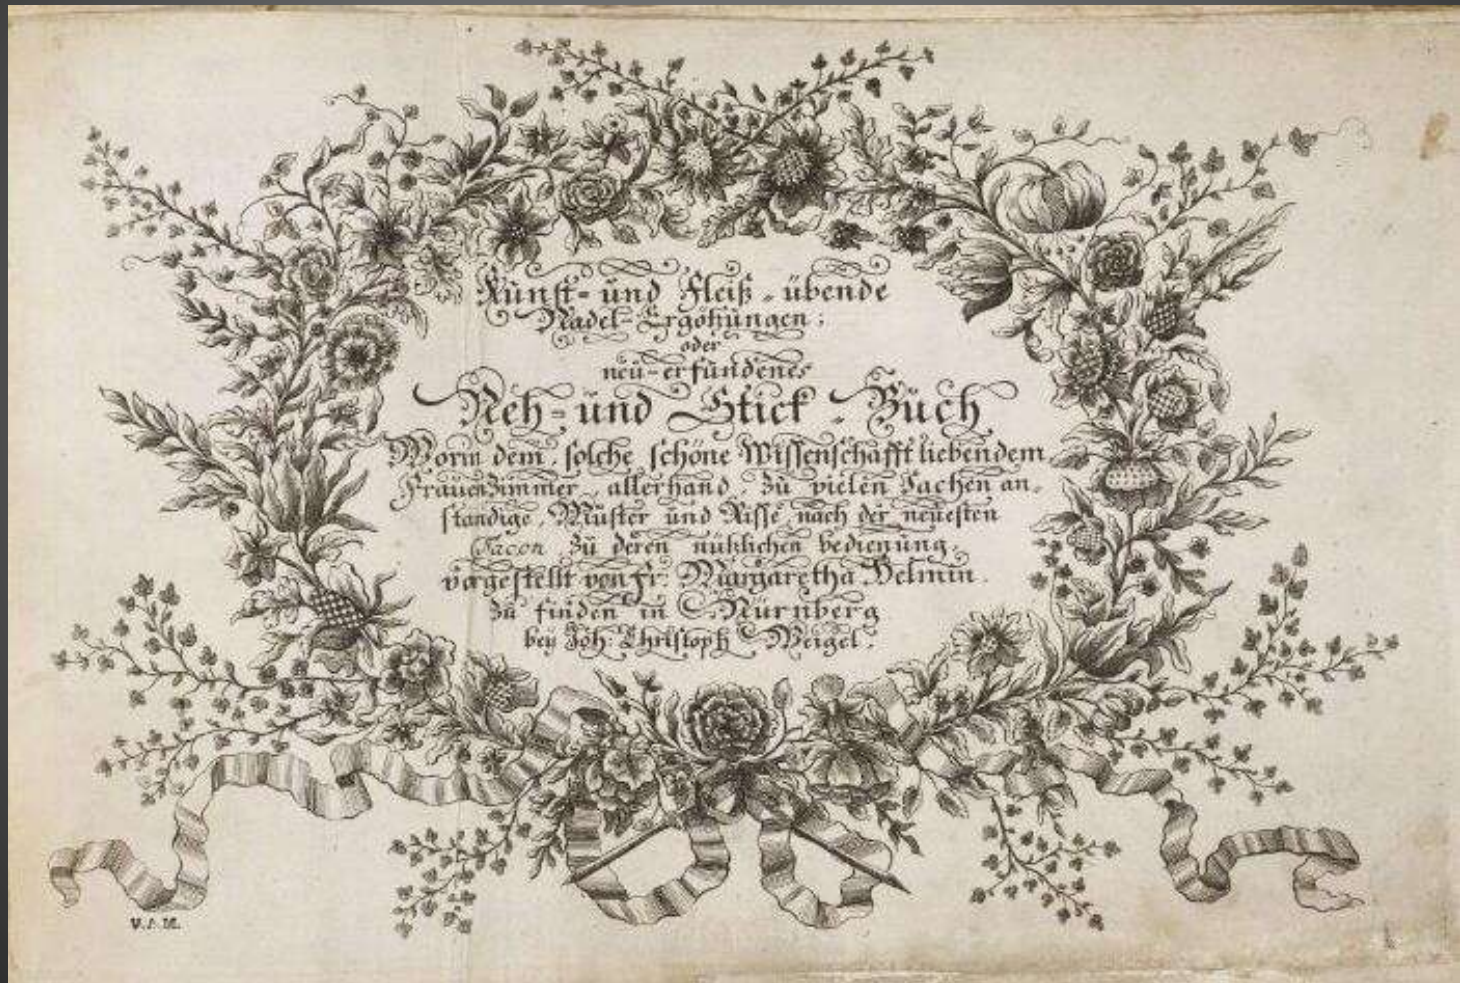 Kunst- und Fleiß-übende
Nadel-Ergötzungen;
oder
neu-erfundenes
Neh- und Stick-Buch
Worin dem, solche schöne Wissenschafft liebendem
Frauenzimmer, allerhand, zu vielen Sachen an-
ständige, Muster und Risse, nach der neuesten
Facon, zu deren nützlichen bedienung,
vorgestellt von Fr: Margaretha Helmin.
zu finden in Nürnberg
bey Joh: Christoph Weigel.